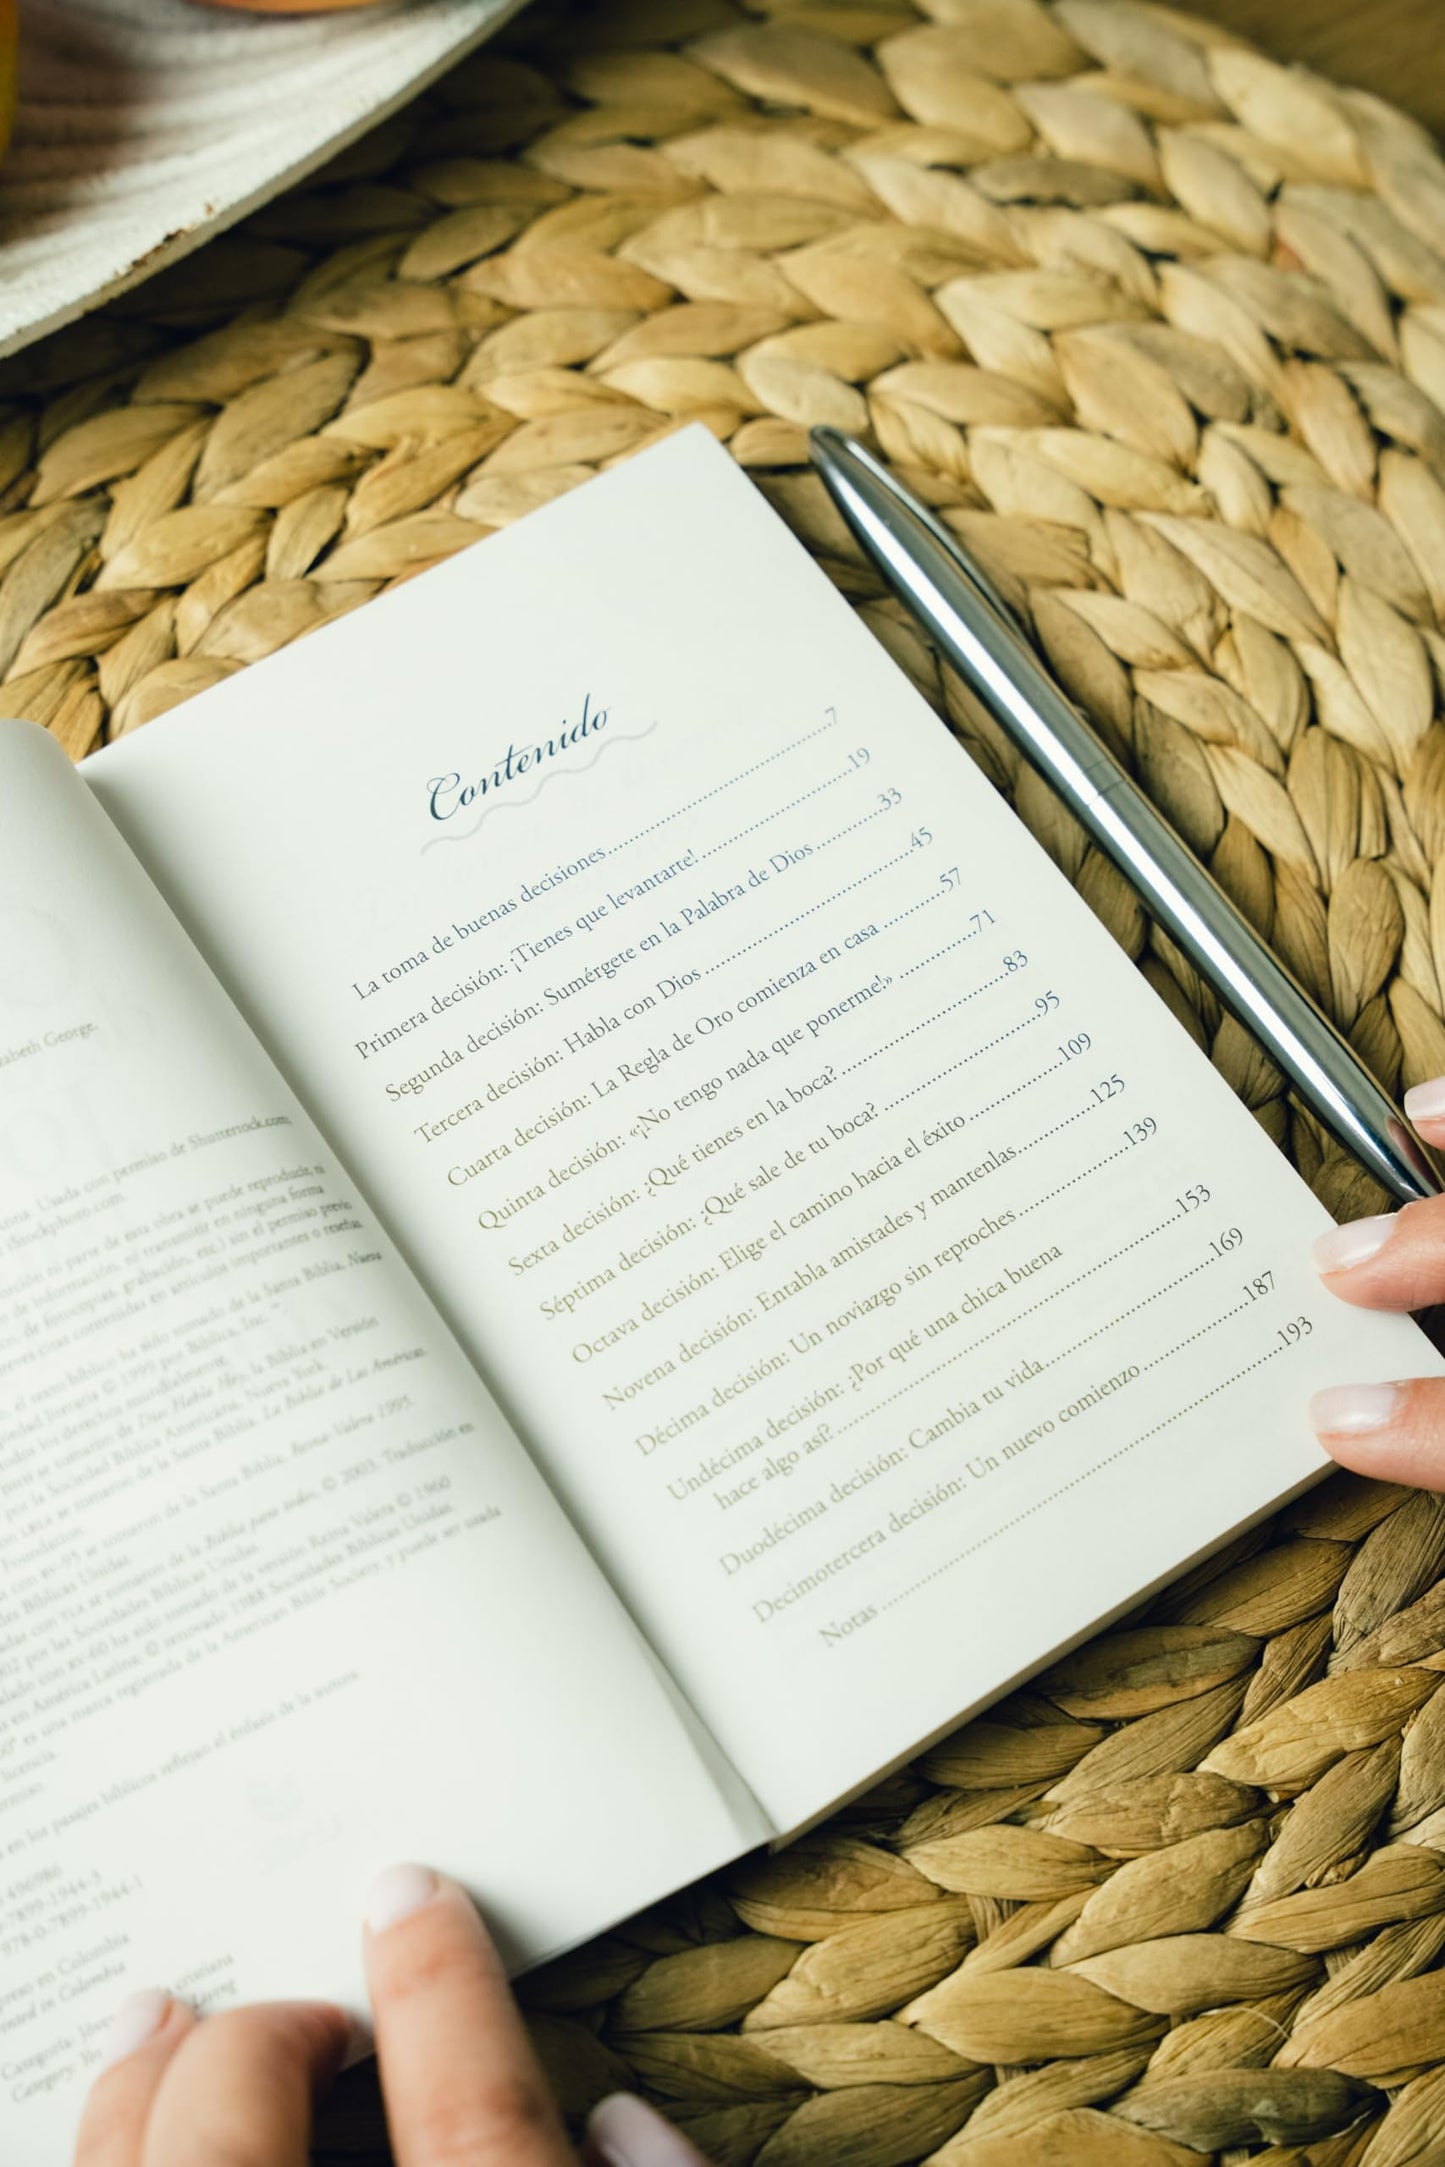 zabeth George.
anna. Usada con permiso de Shutterstock.com.
iStockphoto.com.
ción ni parte de esta obra se puede reproducir, ni
de información, ni transmitir en ninguna forma
o, de fotocopias, grabación, etc.) sin el permiso previo
breves citas contenidas en artículos importantes o reseñas.
el texto bíblico ha sido tomado de la Santa Biblia, Nueva
© 1999 por Bíblica, Inc.
dos los derechos mundialmente.
de Dios Habla Hoy, la Biblia en Versión
por la Sociedad Bíblica Americana, Nueva York.
LBLA se tomaron de la Santa Biblia, La Biblia de Las Américas.
Foundation.
con RV-95 se tomaron de la Santa Biblia, Reina Valera 1995.
Bíblicas Unidas.
con TLA se tomaron de la Biblia para todos, © 2003. Traducción en
por las Sociedades Bíblicas Unidas.
con RV-60 ha sido tomado de la versión Reina Valera © 1960
en América Latina; © renovado 1988 Sociedades Bíblicas Unidas.
es una marca registrada de la American Bible Society, y puede ser usada
licencia.
en los pasajes bíblicos reflejan el énfasis de la autora.
496986
0-7899-1944-3
978-0-7899-1944-1
en Colombia
in Colombia
cristiana
Categoría: Jóve
Category: Yo
Contenido
La toma de buenas decisiones....................................7
Primera decisión: ¡Tienes que levantarte!.......................19
Segunda decisión: Sumérgete en la Palabra de Dios...........33
Tercera decisión: Habla con Dios..............................45
Cuarta decisión: La Regla de Oro comienza en casa...........57
Quinta decisión: «¡No tengo nada que ponerme!»............71
Sexta decisión: ¿Qué tienes en la boca?........................83
Séptima decisión: ¿Qué sale de tu boca?......................95
Octava decisión: Elige el camino hacia el éxito...............109
Novena decisión: Entabla amistades y mantenlas...............125
Décima decisión: Un noviazgo sin reproches..................139
Undécima decisión: ¿Por qué una chica buena
hace algo así?..................................................153
Duodécima decisión: Cambia tu vida..........................169
Decimotercera decisión: Un nuevo comienzo..................187
Notas..........................................................193